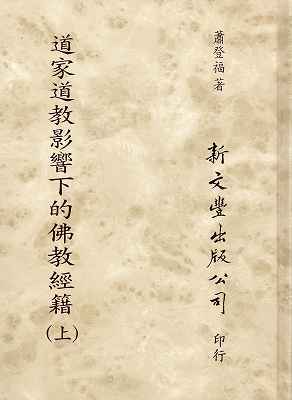 蕭登福著
新文豐出版公司 印行
道家道教影響下的佛教經籍(上)